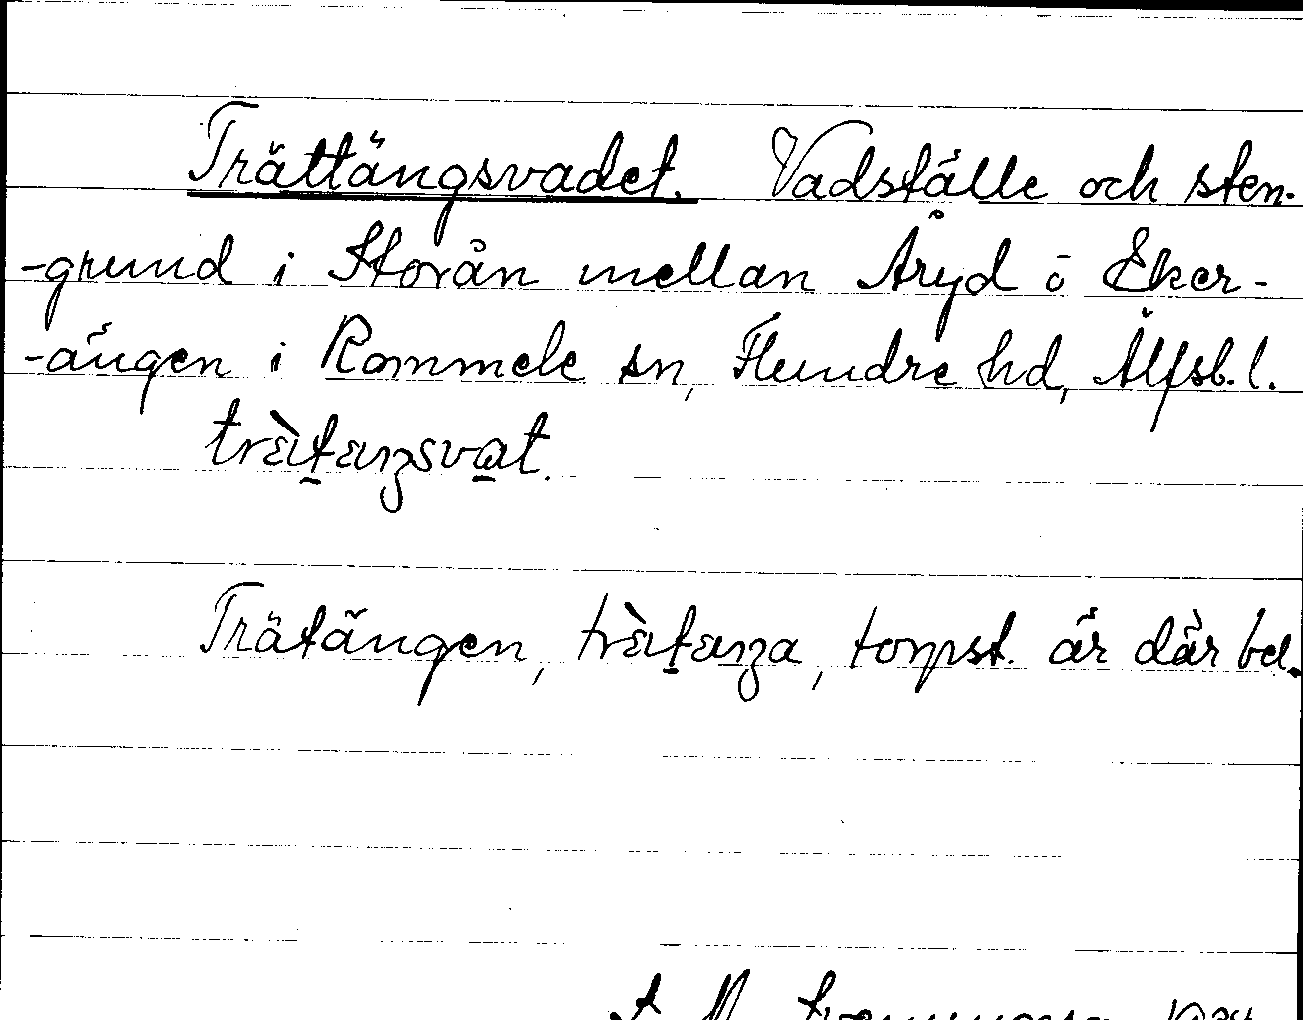 Trättängsvadet. Vadställe och sten-
-grund i Storån mellan Åryd o Eker-
-ängen i Rommele sn, Flundre hd, Älfsb. l.
trὲtεŋsvat.
Trätängen, trὲtεŋa, torpst. är där bel.